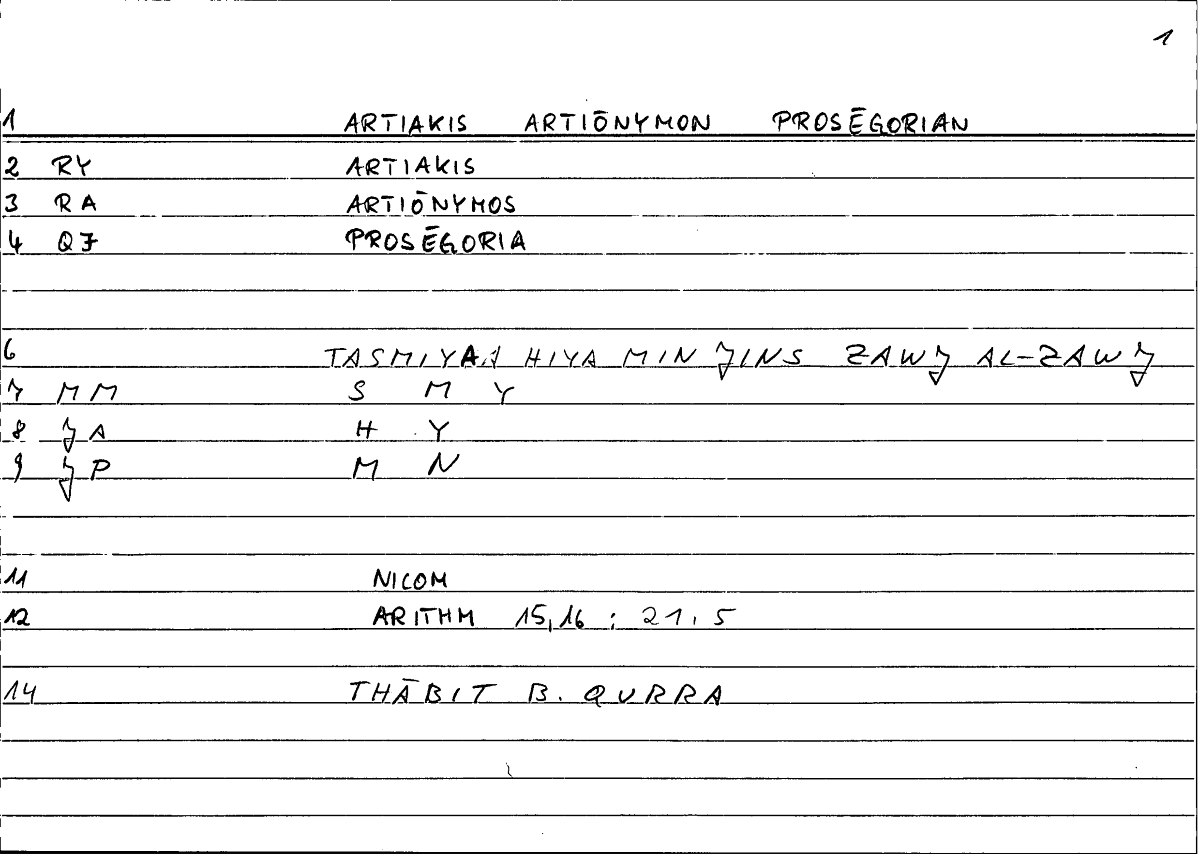 1
1 ARTIAKIS ARTIŌNYMON PROSĒGORIAN
2 RY ARTIAKIS
3 RA ARTIŌNYMOS
4 QJ PROSĒGORIA
6 HIYA MIN JINS ZAWJ AL-ZAWJ
7 MM S M Y
8 JA H Y
9 JP M N
11 NICOM
12 ARITHM 15,16 ; 21,5
14 THĀBIT B. QURRA